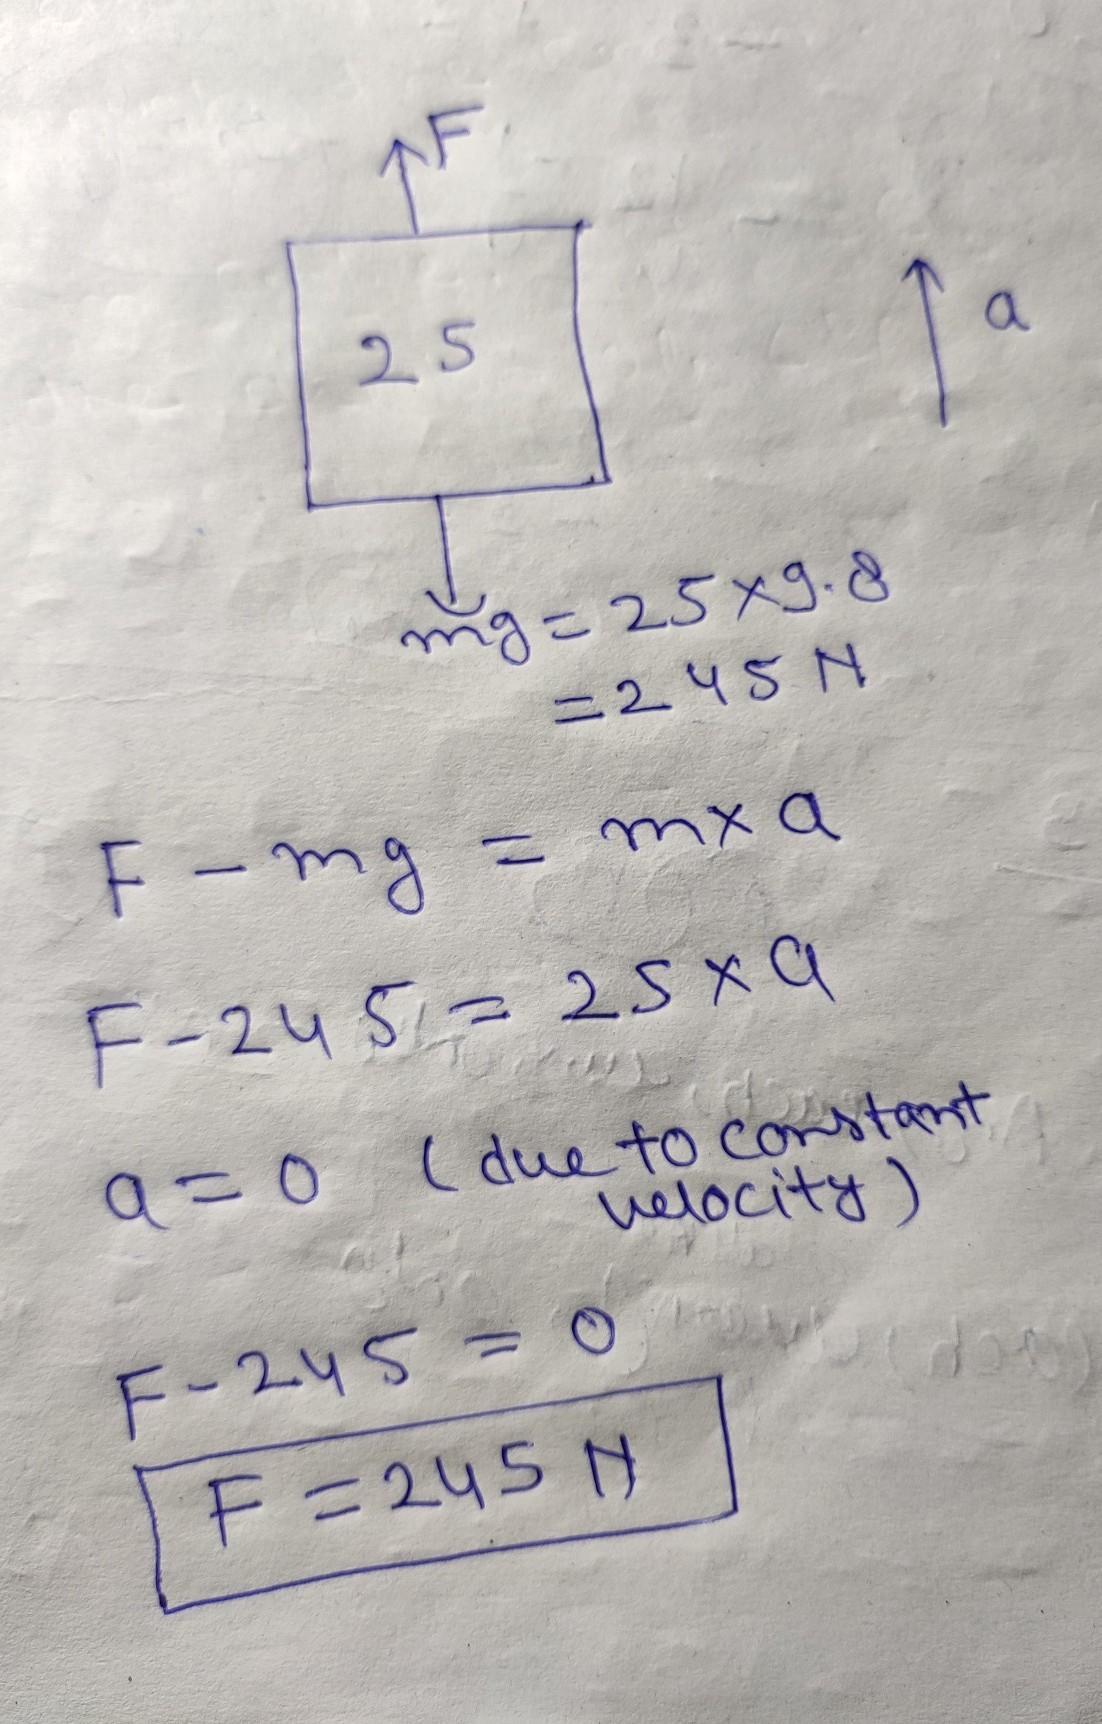 F
25
a
mg = 25 x 9.8
= 245 N
F - mg = m x a
F - 245 = 25 x a
a = 0 (due to constant
velocity)
F - 245 = 0
F = 245 N